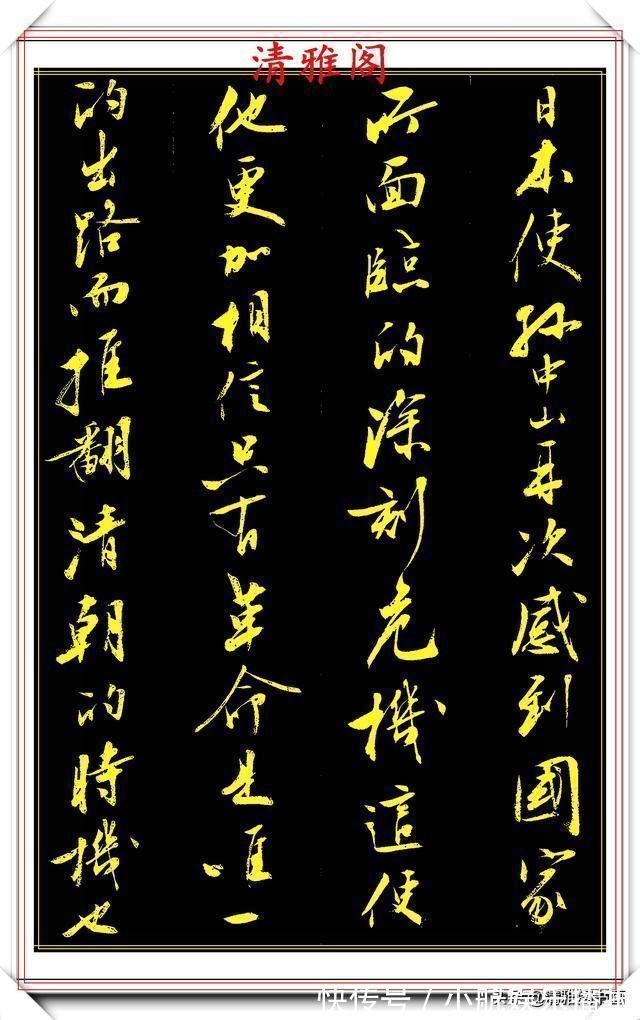 清雅阁
日本使孙中山再次感到國家
所面臨的深刻危機這使
他更加相信只有革命是唯一
的出路而推翻清朝的時機也
快传号／小鹏娱乐播